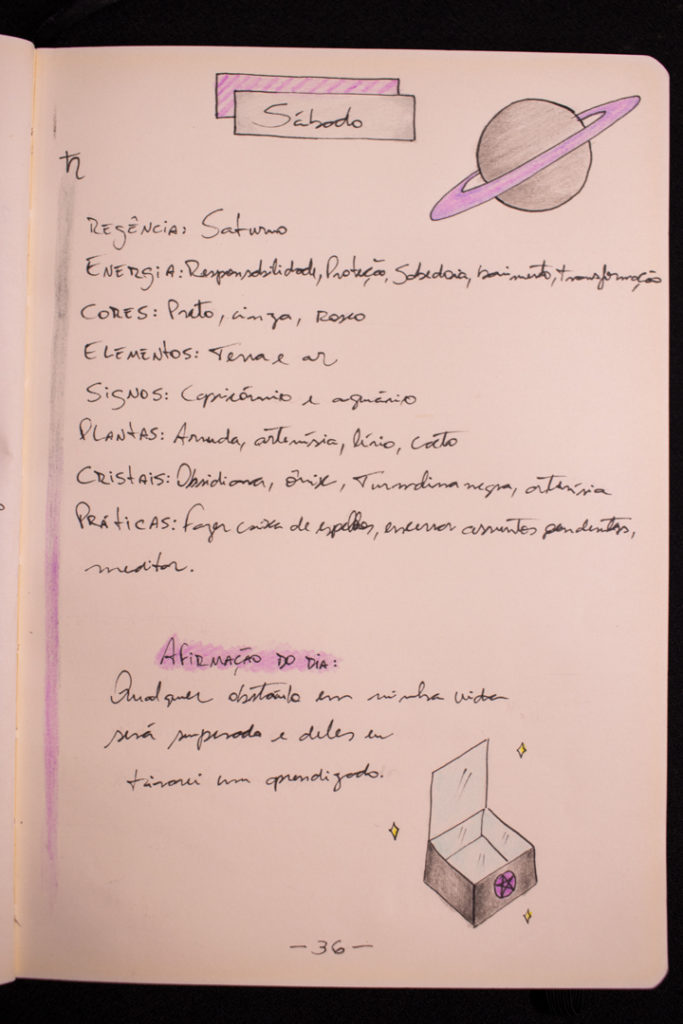 Sábado
♄
REGÊNCIA: Saturno
ENERGIA: Responsabilidade, Proteção, Sabedoria, banimento, transformação
CORES: Preto, cinza, roxo
ELEMENTOS: Terra e ar
SIGNOS: Capricórnio e aquário
PLANTAS: Arruda, artemísia, lírio, cacto
CRISTAIS: Obsidiana, ônix, Turmalina negra, artemísia
PRÁTICAS: Fazer caixa de espelhos, encerrar assuntos pendentes,
meditar.
AFIRMAÇÃO DO DIA:
Qualquer obstáculo em minha vida
será superado e deles eu
tirarei um aprendizado.
- 36 -